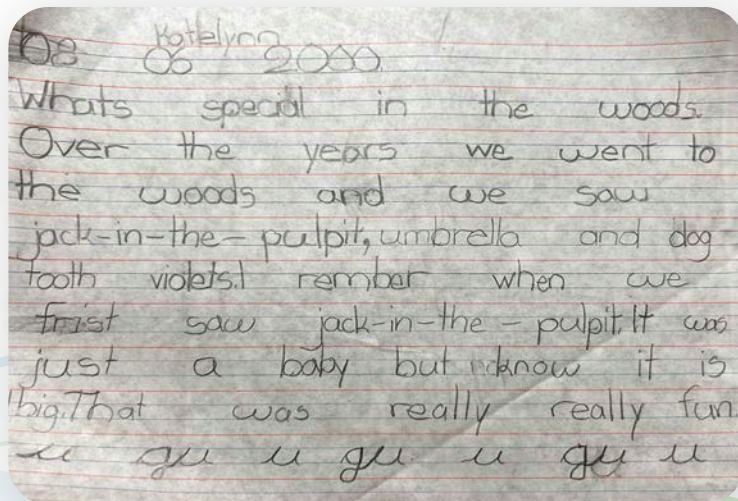 Katelynn
08 06 2000
Whats special in the woods
Over the years we went to
the woods and we saw
jack-in-the-pulpit, umbrella and dog
tooth violets. I rember when we
frist saw jack-in-the-pulpit. It was
just a baby but know it is
big. That was really really fun
u gu u gu u gu u